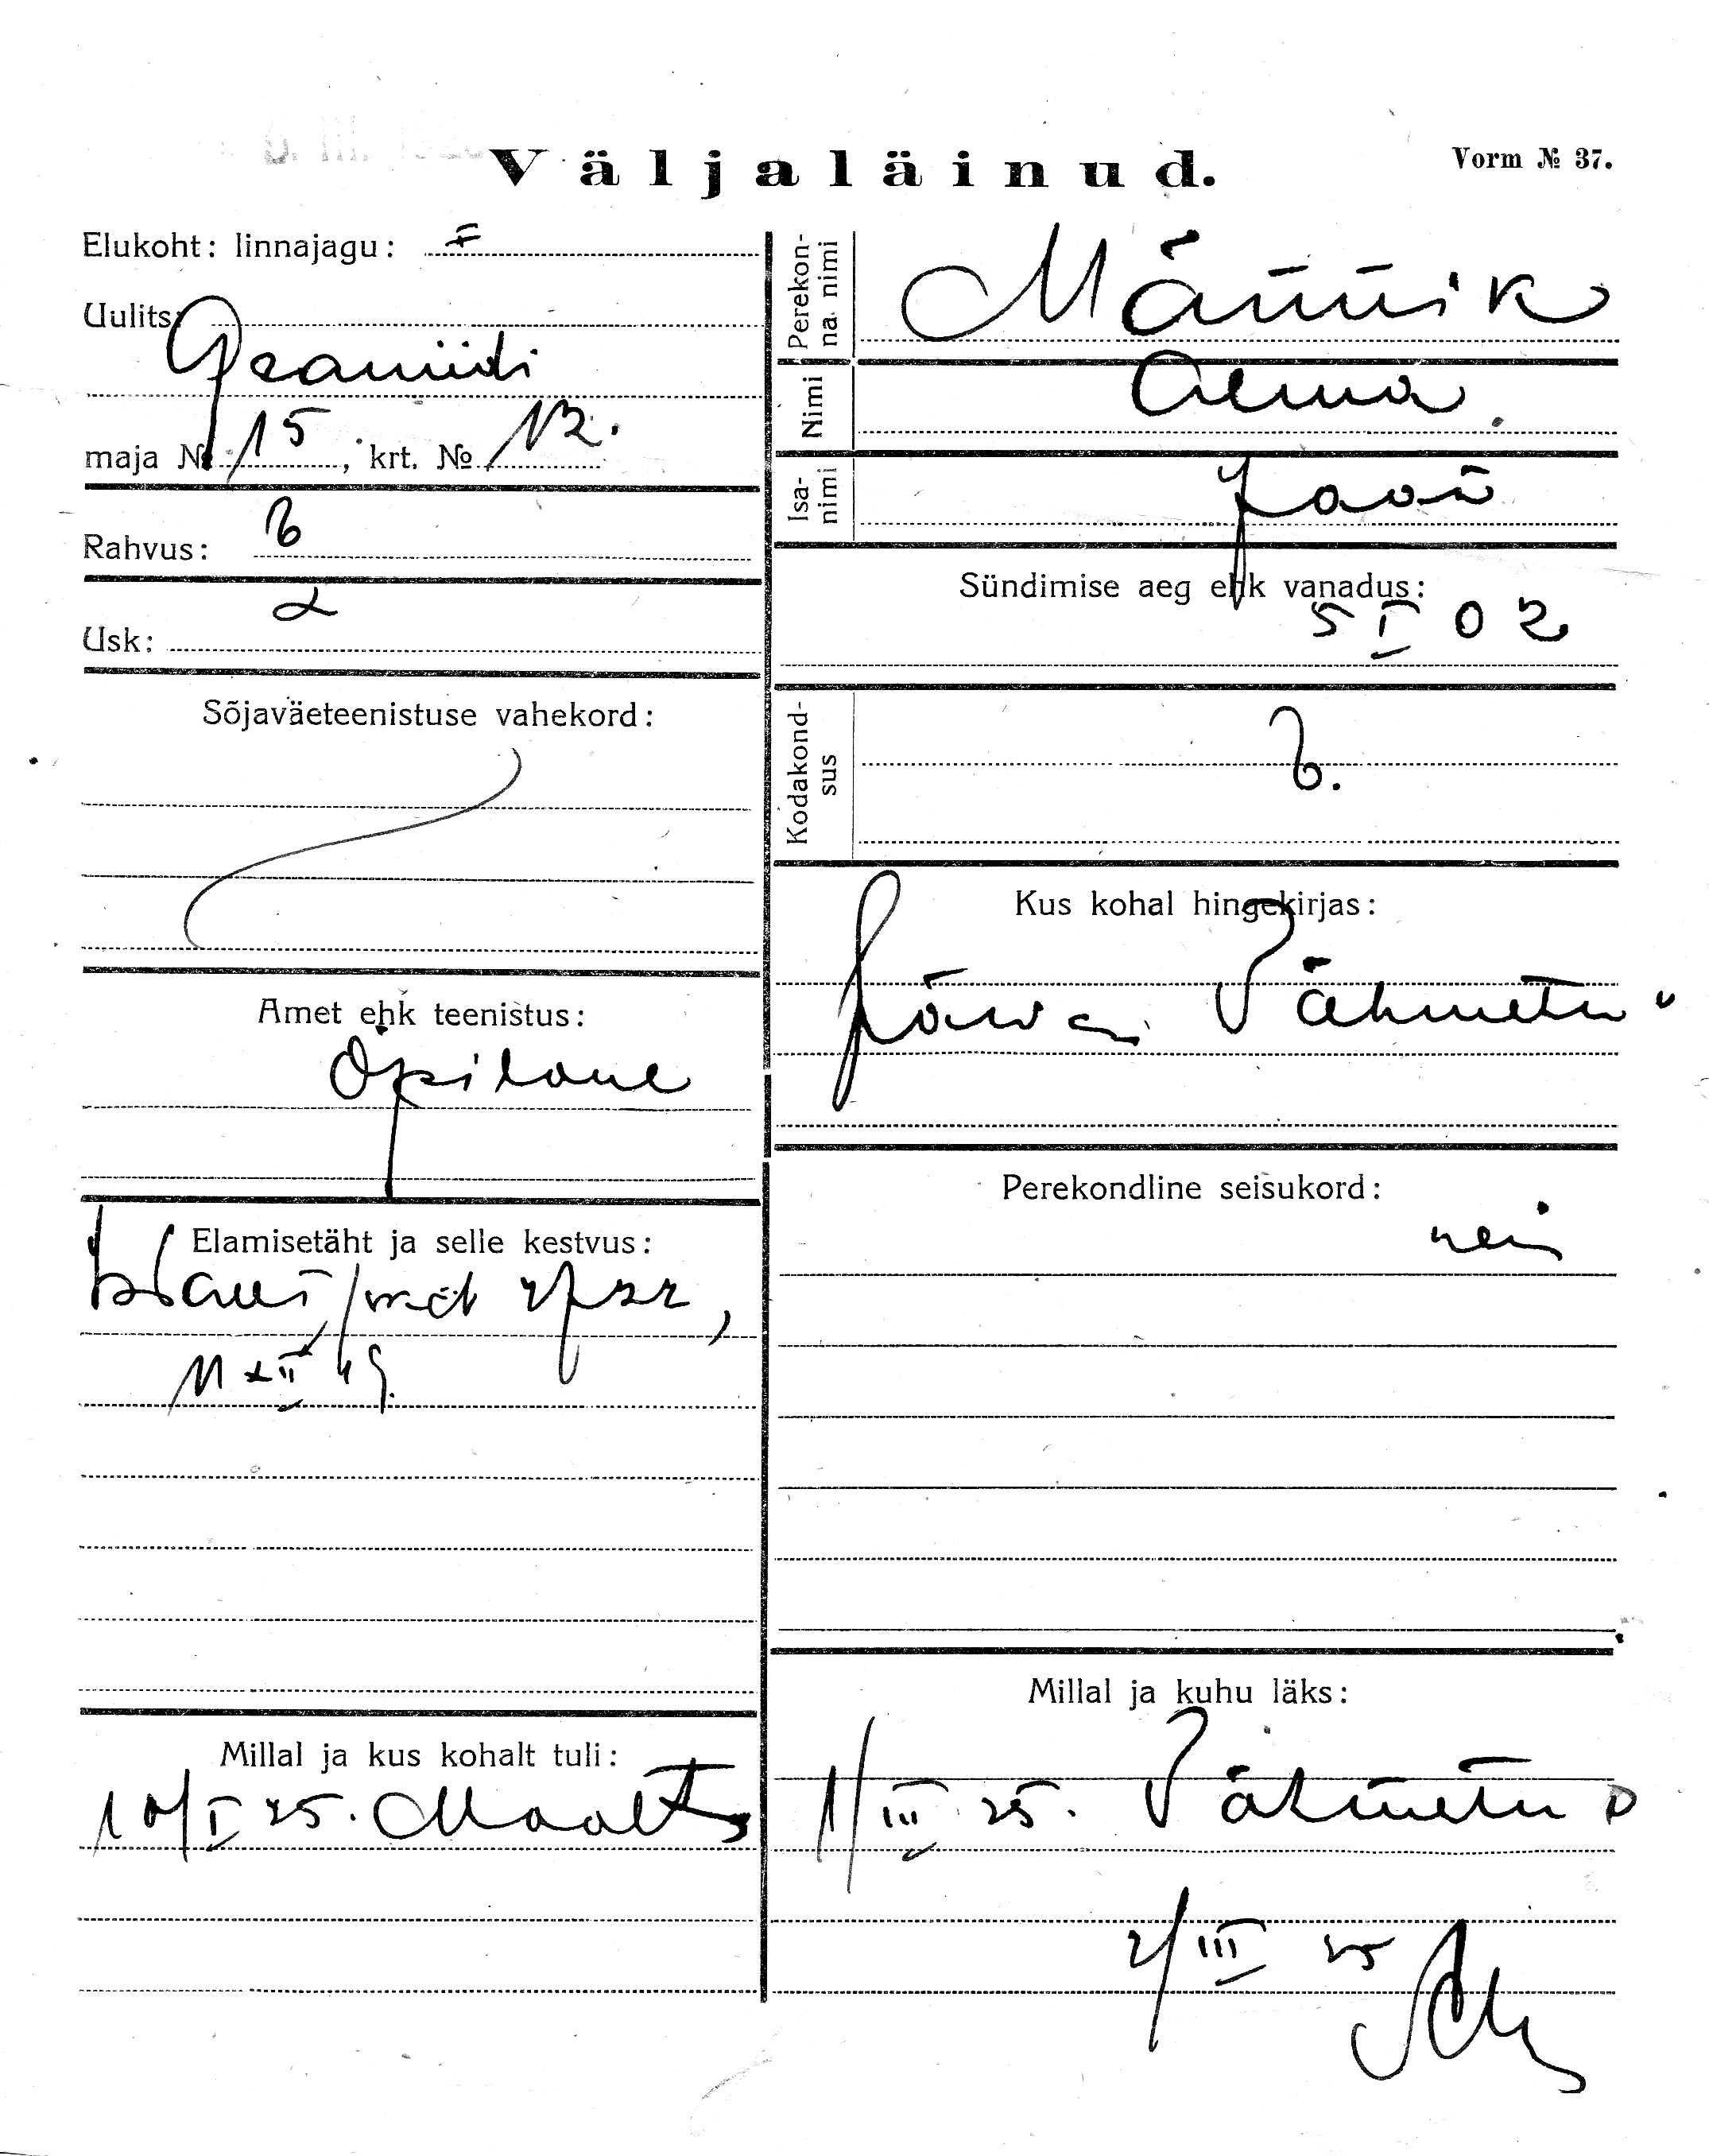 Väljaläinud.
Vorm № 37.
Elukoht: linnajagu: I
Uulits:
Graniidi
maja № 15, krt. № 12.
Rahvus: E
Usk: L
Sõjaväeteenistuse vahekord:
Amet ehk teenistus:
Õpilane
Elamisetäht ja selle kestvus:
11 XII 19.
Millal ja kus kohalt tuli:
10/I 25. Maalt
Perekonna nimi
Männik
Nimi
Alma
Isanimi
Jaan
Sündimise aeg ehk vanadus:
5 I 02
Kodakondsus
E.
Kus kohal hingekirjas:
Järva Vähmetu
Perekondline seisukord:
nei
Millal ja kuhu läks:
1/III 25. Vähmetu
2/III 25